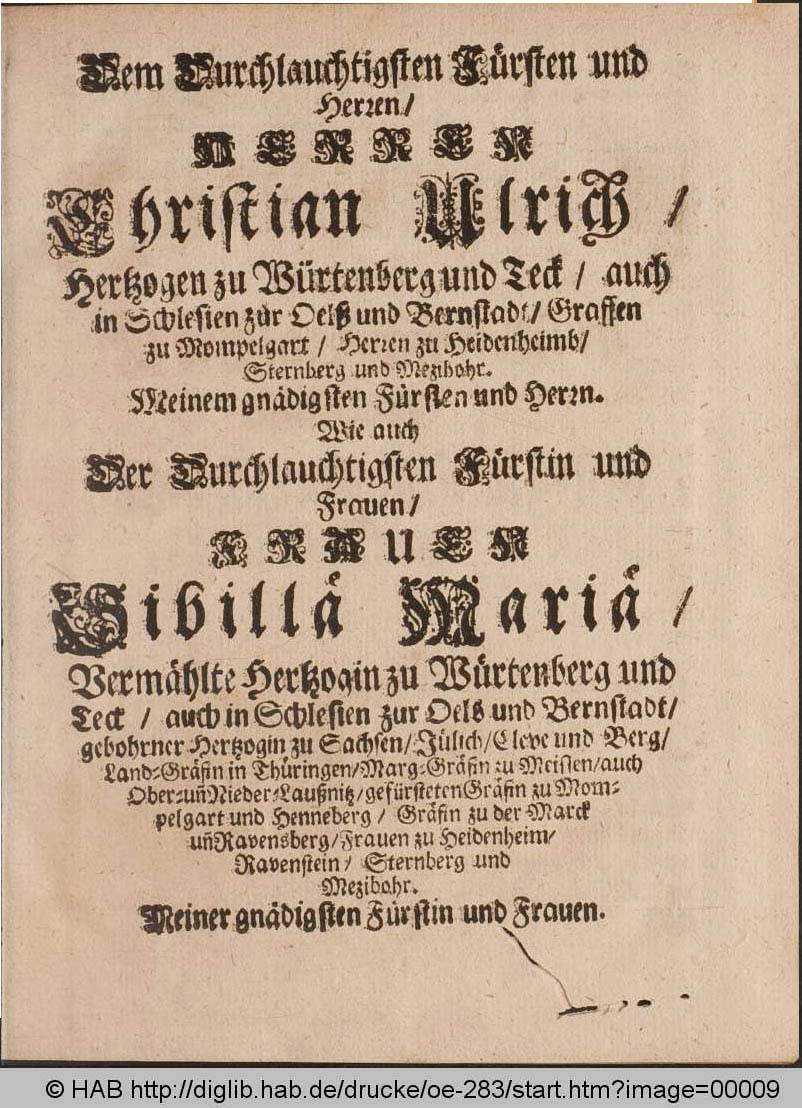 Dem Durchlauchtigsten Fürsten und
Herren/
HERREN
Christian Ulrich /
Hertzogen zu Würtenberg und Teck / auch
in Schlesien zur Oelß und Bernstadt/ Graffen
zu Mompelgart / Herren zu Heidenheimb/
Sternberg und Mezibohr.
Meinem gnädigsten Fürsten und Herrn.
Wie auch
Der Durchlauchtigsten Fürstin und
Frauen/
FRAUEN
Sibillä Mariä /
Vermählte Hertzogin zu Würtenberg und
Teck / auch in Schlesien zur Oels und Bernstadt/
gebohrner Hertzogin zu Sachsen/Jülich/Cleve und Berg/
Land-Gräfin in Thüringen/Marg-Gräfin zu Meissen/auch
Ober-uñ Nieder-Laußnitz/gefürsteten Gräfin zu Mom-
pelgart und Henneberg / Gräfin zu der Marck
uñ Ravensberg/Frauen zu Heidenheim/
Ravenstein/ Sternberg und
Mezibohr.
Meiner gnädigsten Fürstin und Frauen.
© HAB http://diglib.hab.de/drucke/oe-283/start.htm?image=00009